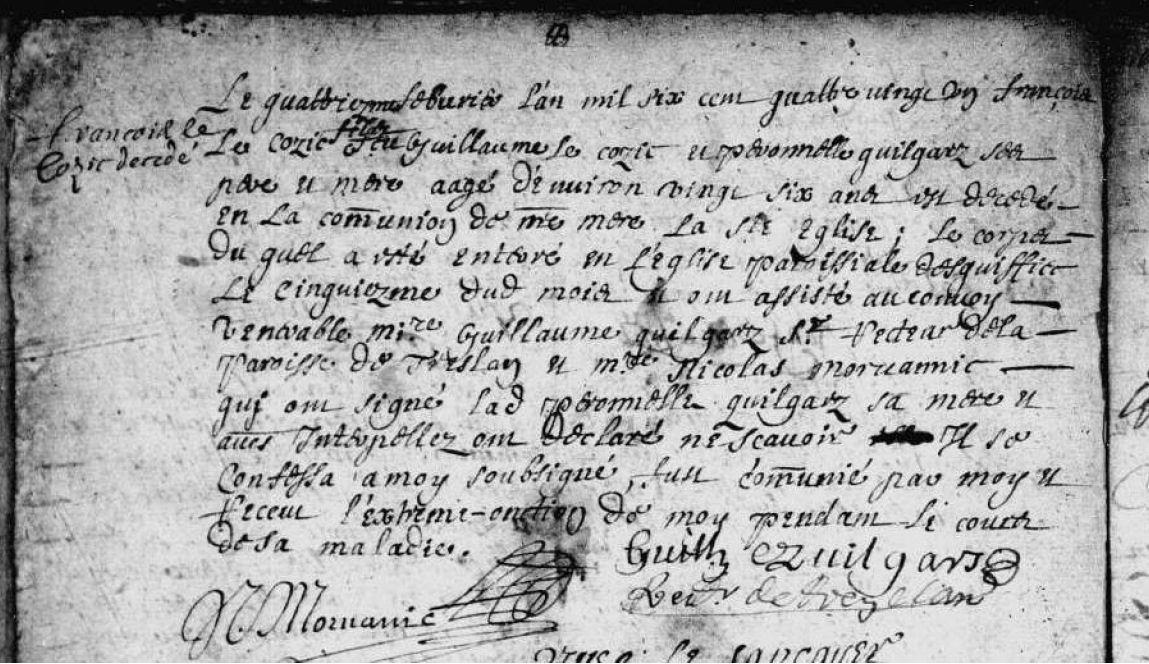 Le quattriesme febvrier l'an mil six cent quattre vingt un françois
françois le
Cozic decedé
Le Cozic filz feu Guillaume le cozic et peronnelle quilgarz ses
pere et mere aagé d'environ vingt six ans est decedé
en La com̄union de nr̄e mere La Ste Eglise ; Le corps
du quel a esté enterré en l'église paroissiale desquiffiec
Le Cinquiezme dud mois et ont assisté au convoy
Venerable mire Guillaume quilgarz Sr Recteur de la
paroisse de Treslan et mtre Nicolas morvannic
qui ont signé lad peronnelle quilgarz sa mere et
aues Interpellez ont declaré ne scavoir Il se
Confessa a moy soubsigné, fust com̄unié par moy et
Receut l'extreme-onction de moy pendant le cours
de sa maladie.
Guill quilgars
N. Morvanic
Rectr de trezelan
le